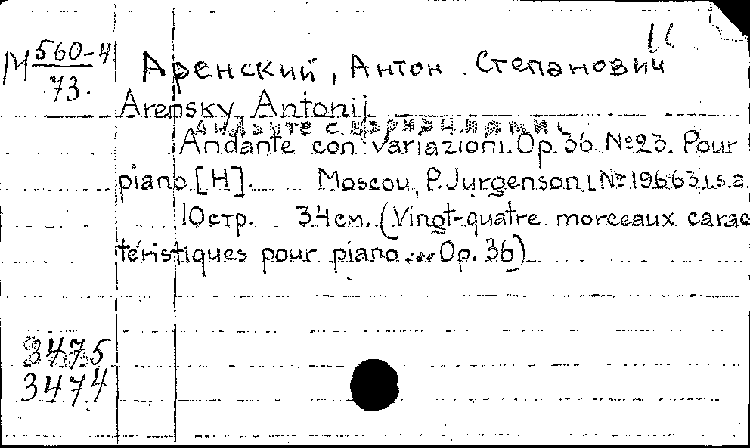 М 560-4
73.
Аренский, Антон Степанович
Arensky, Antonij
Анданте с вариациями
Andante con variazioni. Op. 36 №23. Pour
piano [Н]. Moscou, P. Jurgenson, №19663, s.a.
10стр. 34см. (Vingt-quatre morceaux carac
téristiques pour piano... Op. 36)
3475
3474